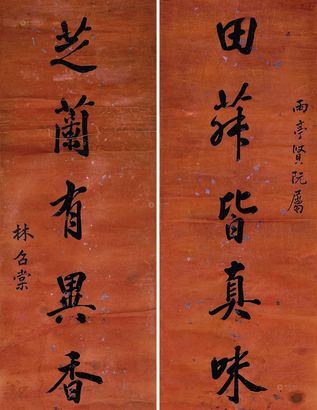 雨亭賢阮屬
田皆真味
芝蘭有異香
林召棠